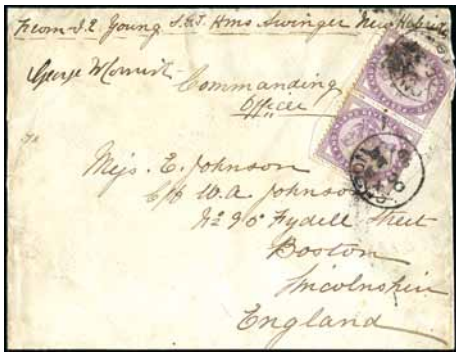 From J.E. Young S.B.S. Hms Swinger New Hebrides
George W Morrist
Commanding
Officer
Miss. E. Johnson
C/o W. A. Johnson
No 90 Fydell Street
Boston
Lincolnshire
England